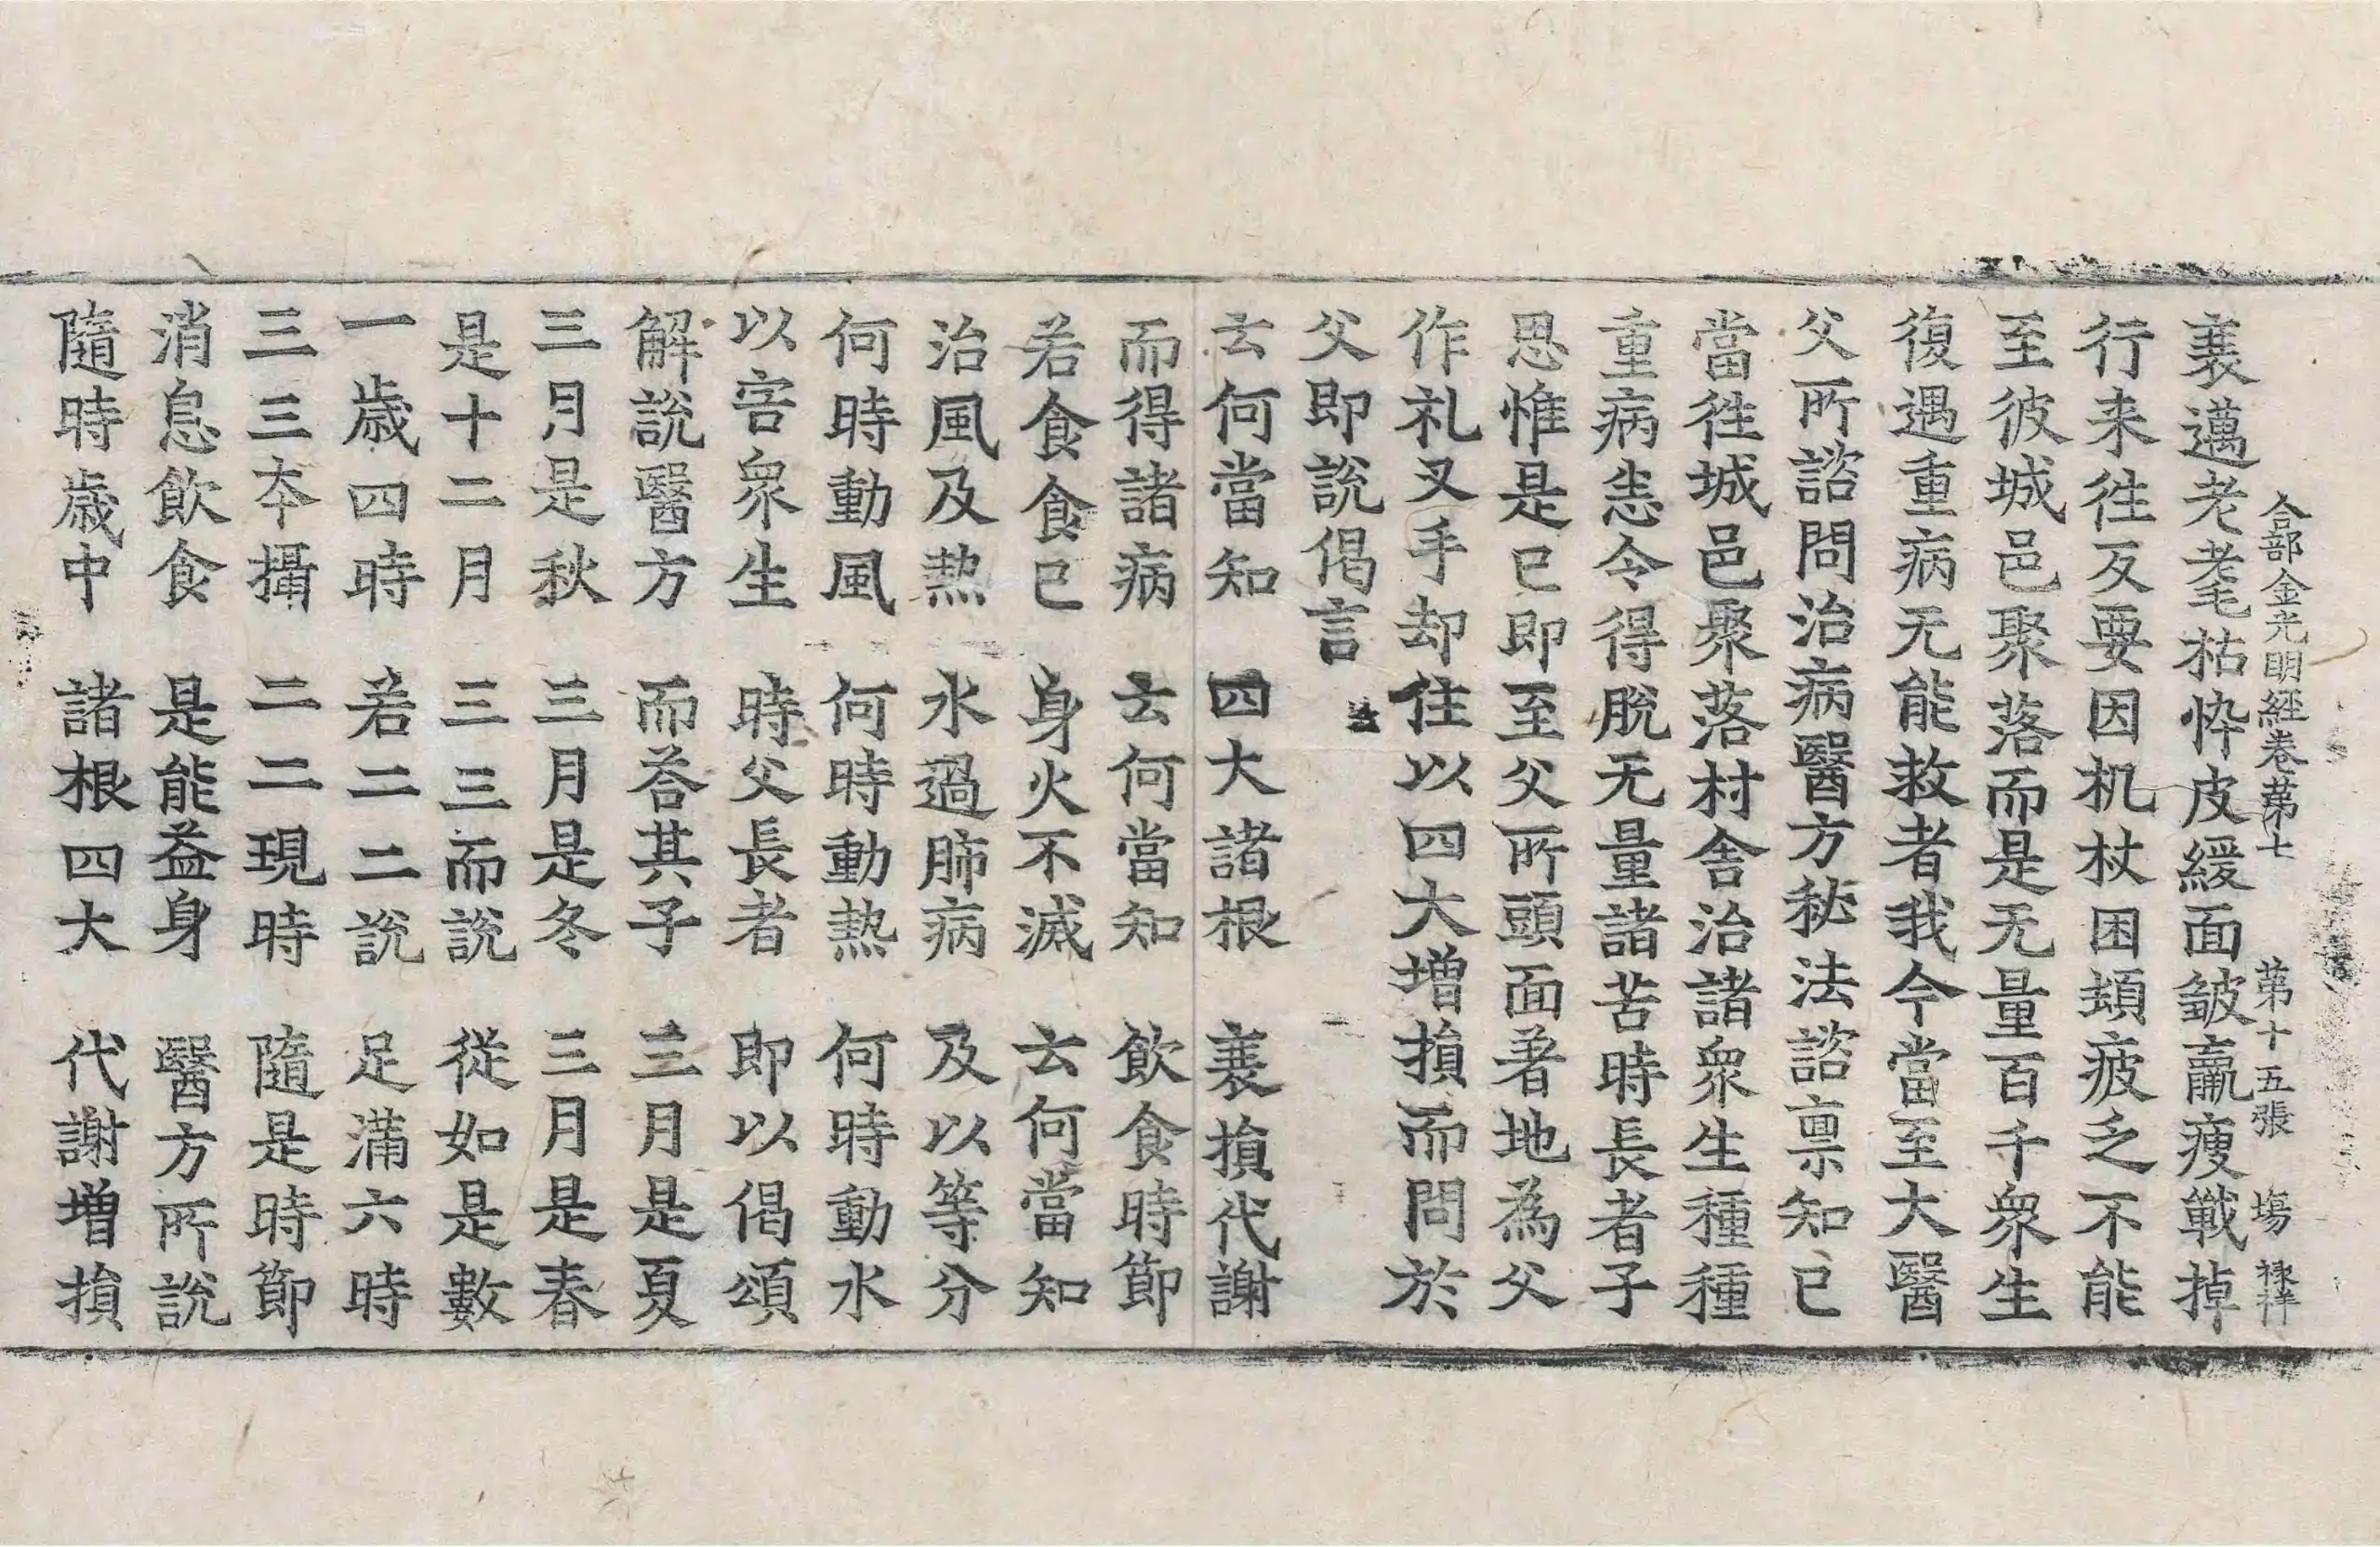 合部金光明經卷苐七 苐十五張 塲 祿祥
衰邁老耄枯悴皮緩面皺羸瘦戰掉
行来徃反要因机杖困頓疲乏不能
至彼城邑聚落而是无量百千衆生
復遇重病无能救者我今當至大醫
父所諮問治病醫方秘法諮禀知已
當徃城邑聚落村舍治諸衆生種種
重病悉令得脫无量諸苦時長者子
思惟是已即至父所頭面著地為父
作礼叉手却住以四大增損而問於
父即說偈言
云何當知 四大諸根 衰損代謝
而得諸病 云何當知 飲食時節
若食食已 身火不滅 云何當知
治風及熱 水過肺病 及以等分
何時動風 何時動熱 何時動水
以害衆生 時父長者 即以偈頌
解說醫方 而荅其子 三月是夏
三月是秋 三月是冬 三月是春
是十二月 三三而說 從如是數
一歲四時 若二二說 足滿六時
三三夲攝 二二現時 隨是時節
消息飲食 是能益身 醫方所說
隨時歲中 諸根四大 代謝增損